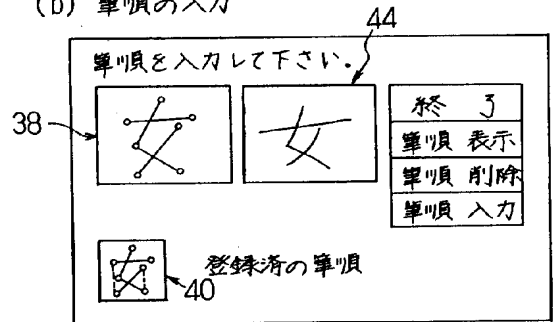 (b) 筆順の入力
44
筆順を入力して下さい.
38
女
終 了
筆順 表示
筆順 削除
筆順 入力
登録済の筆順
40